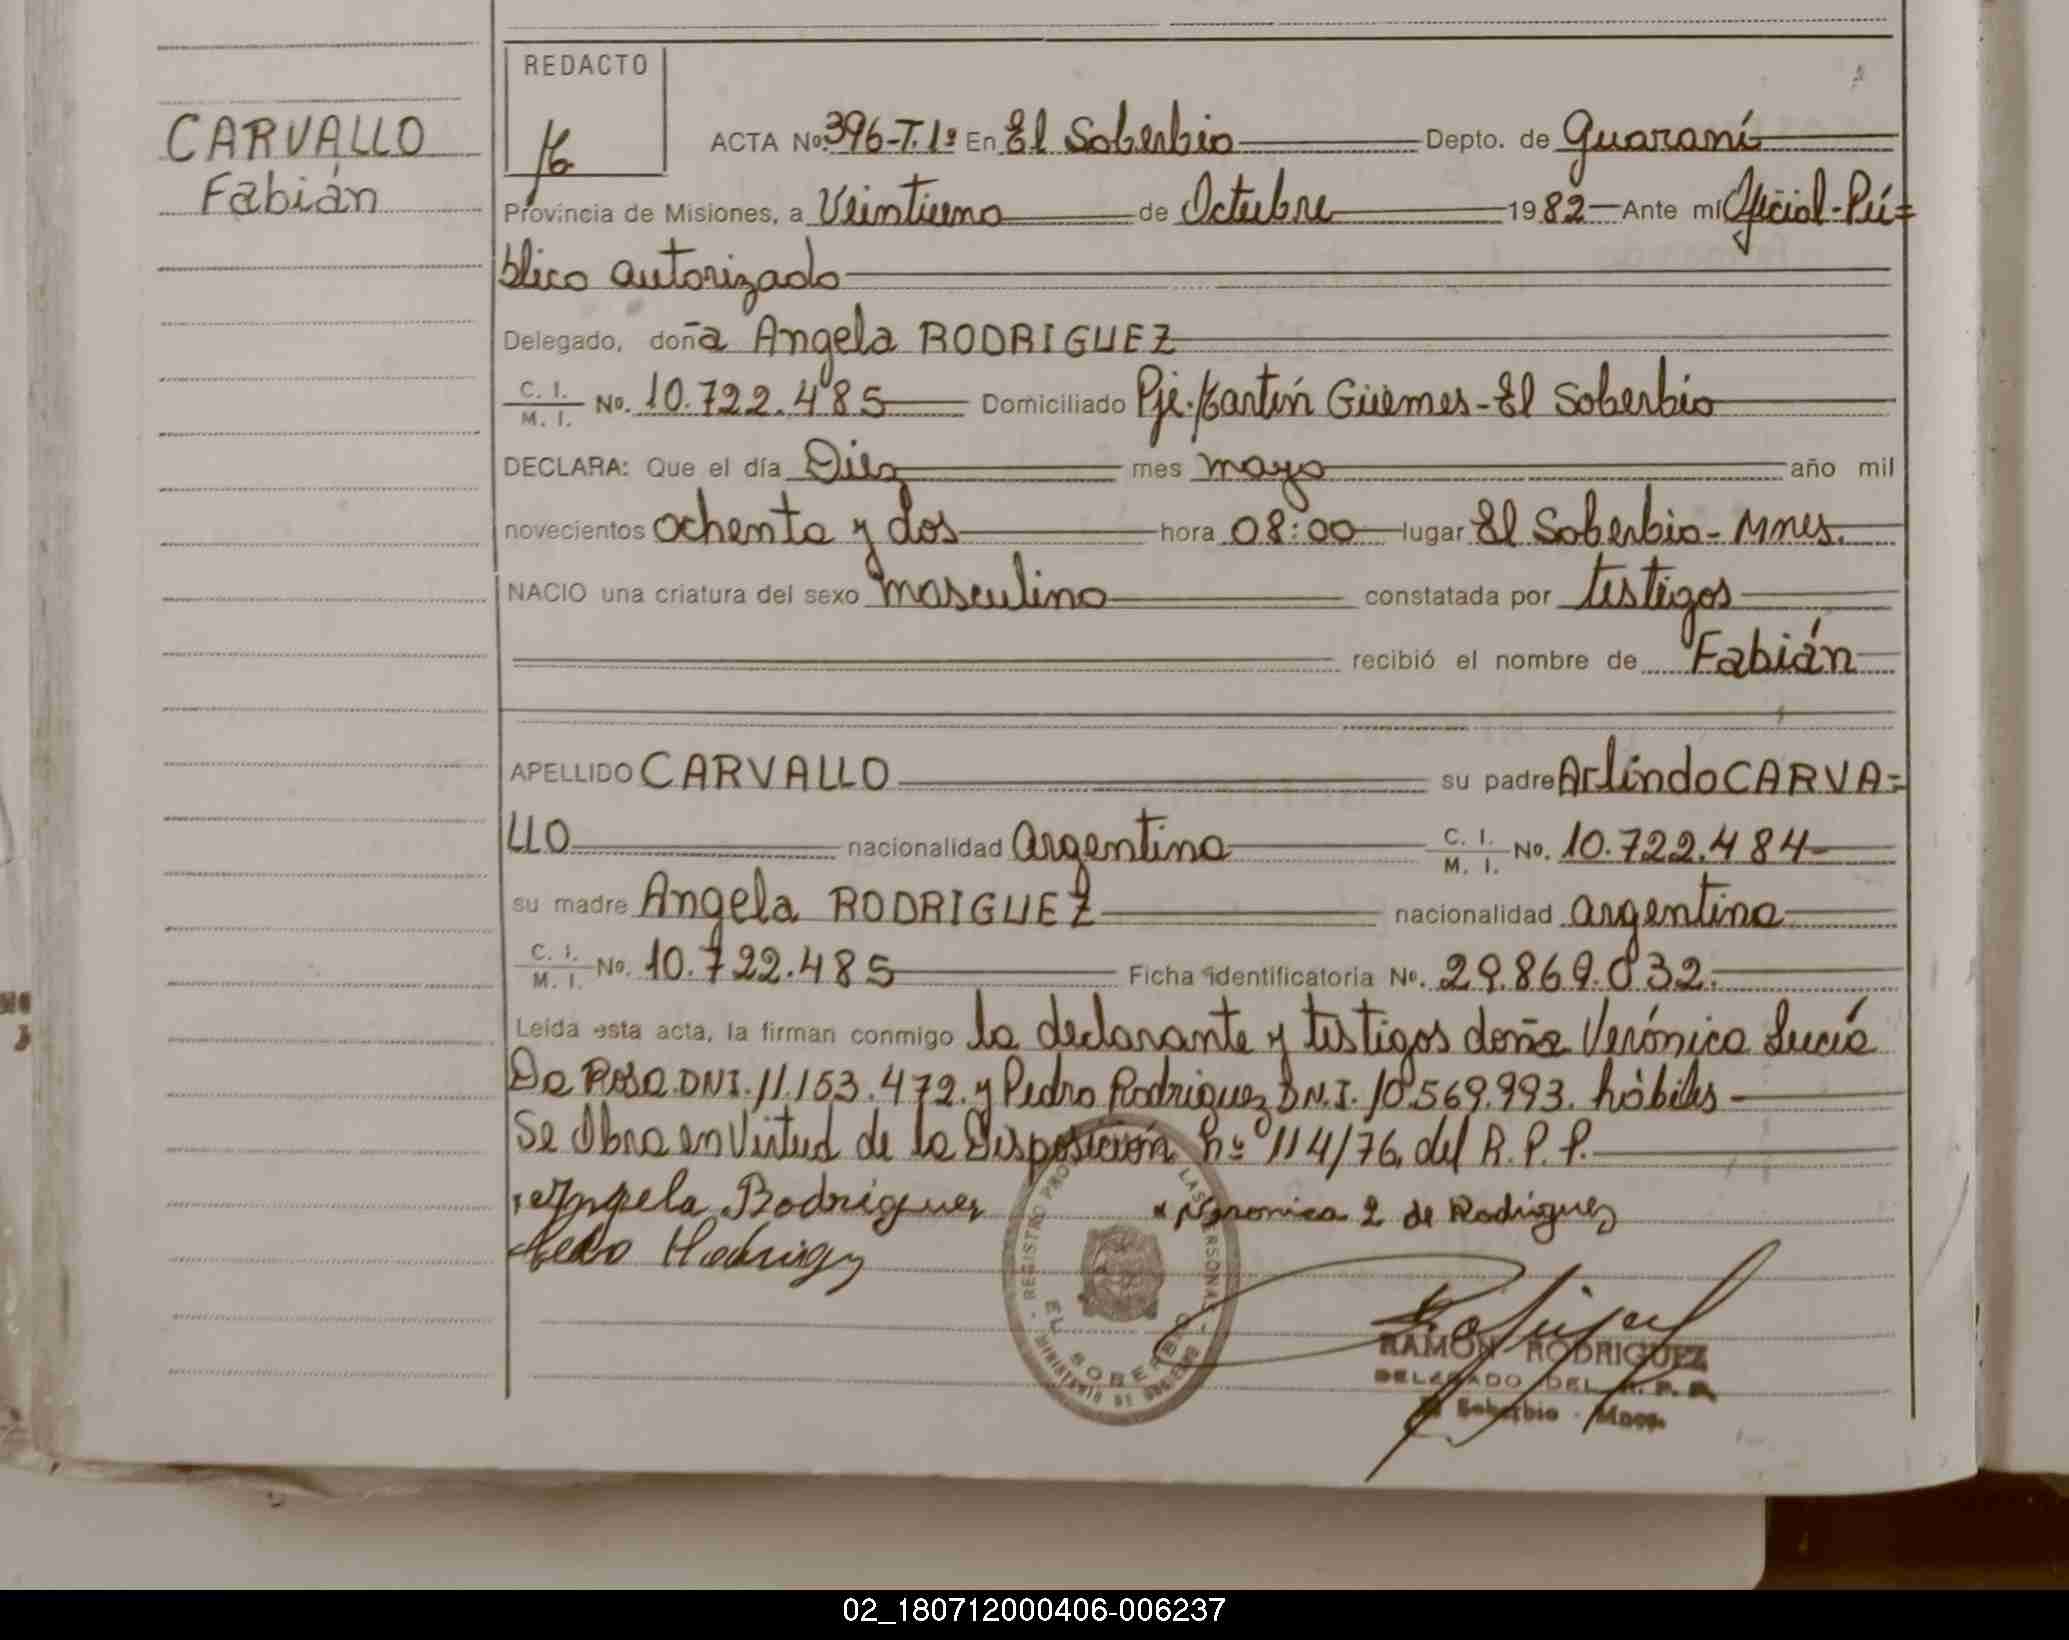 REDACTO
CARVALLO
Fabián
ACTA Nº 396-T.1º En El Soberbio Depto. de Guaraní
Provincia de Misiones, a Veintiuno de Octubre 1982 Ante mí Oficial-Pú=
blico autorizado
Delegado, doña Angela RODRIGUEZ
C. I.
M. I. Nº. 10.722.485 Domiciliado Pje. Martín Güemes-El Soberbio
DECLARA: Que el día Diez mes mayo año mil
novecientos ochenta y dos hora 08:00 lugar El Soberbio-Mnes.
NACIO una criatura del sexo masculino constatada por testigos
recibió el nombre de Fabián
APELLIDO CARVALLO su padre Arlindo CARVA=
LLO nacionalidad argentina C. I.
M. I. Nº. 10.722.484
su madre Angela RODRIGUEZ nacionalidad argentina
C. I.
M. I. Nº. 10.722.485 Ficha identificatoria Nº. 29.869.032.
Leída esta acta, la firman conmigo la declarante y testigos doña Verónica Lucía
Da Rosa DNI. 11.153.472. y Pedro Rodriguez D.N.I. 10.569.993. hábiles
Se Obra en Virtud de la Disposición nº 114/76, del R.P.P.
Angela Rodriguez
Veronica L de Rodriguez
REGISTRO PRO LAS PERSONAS
EL SOBERBIO
MINISTERIO DE GOBIERNO
RAMON RODRIGUEZ
DELEGADO DEL R. P. P.
El Soberbio - Mnes.
02_180712000406-006237